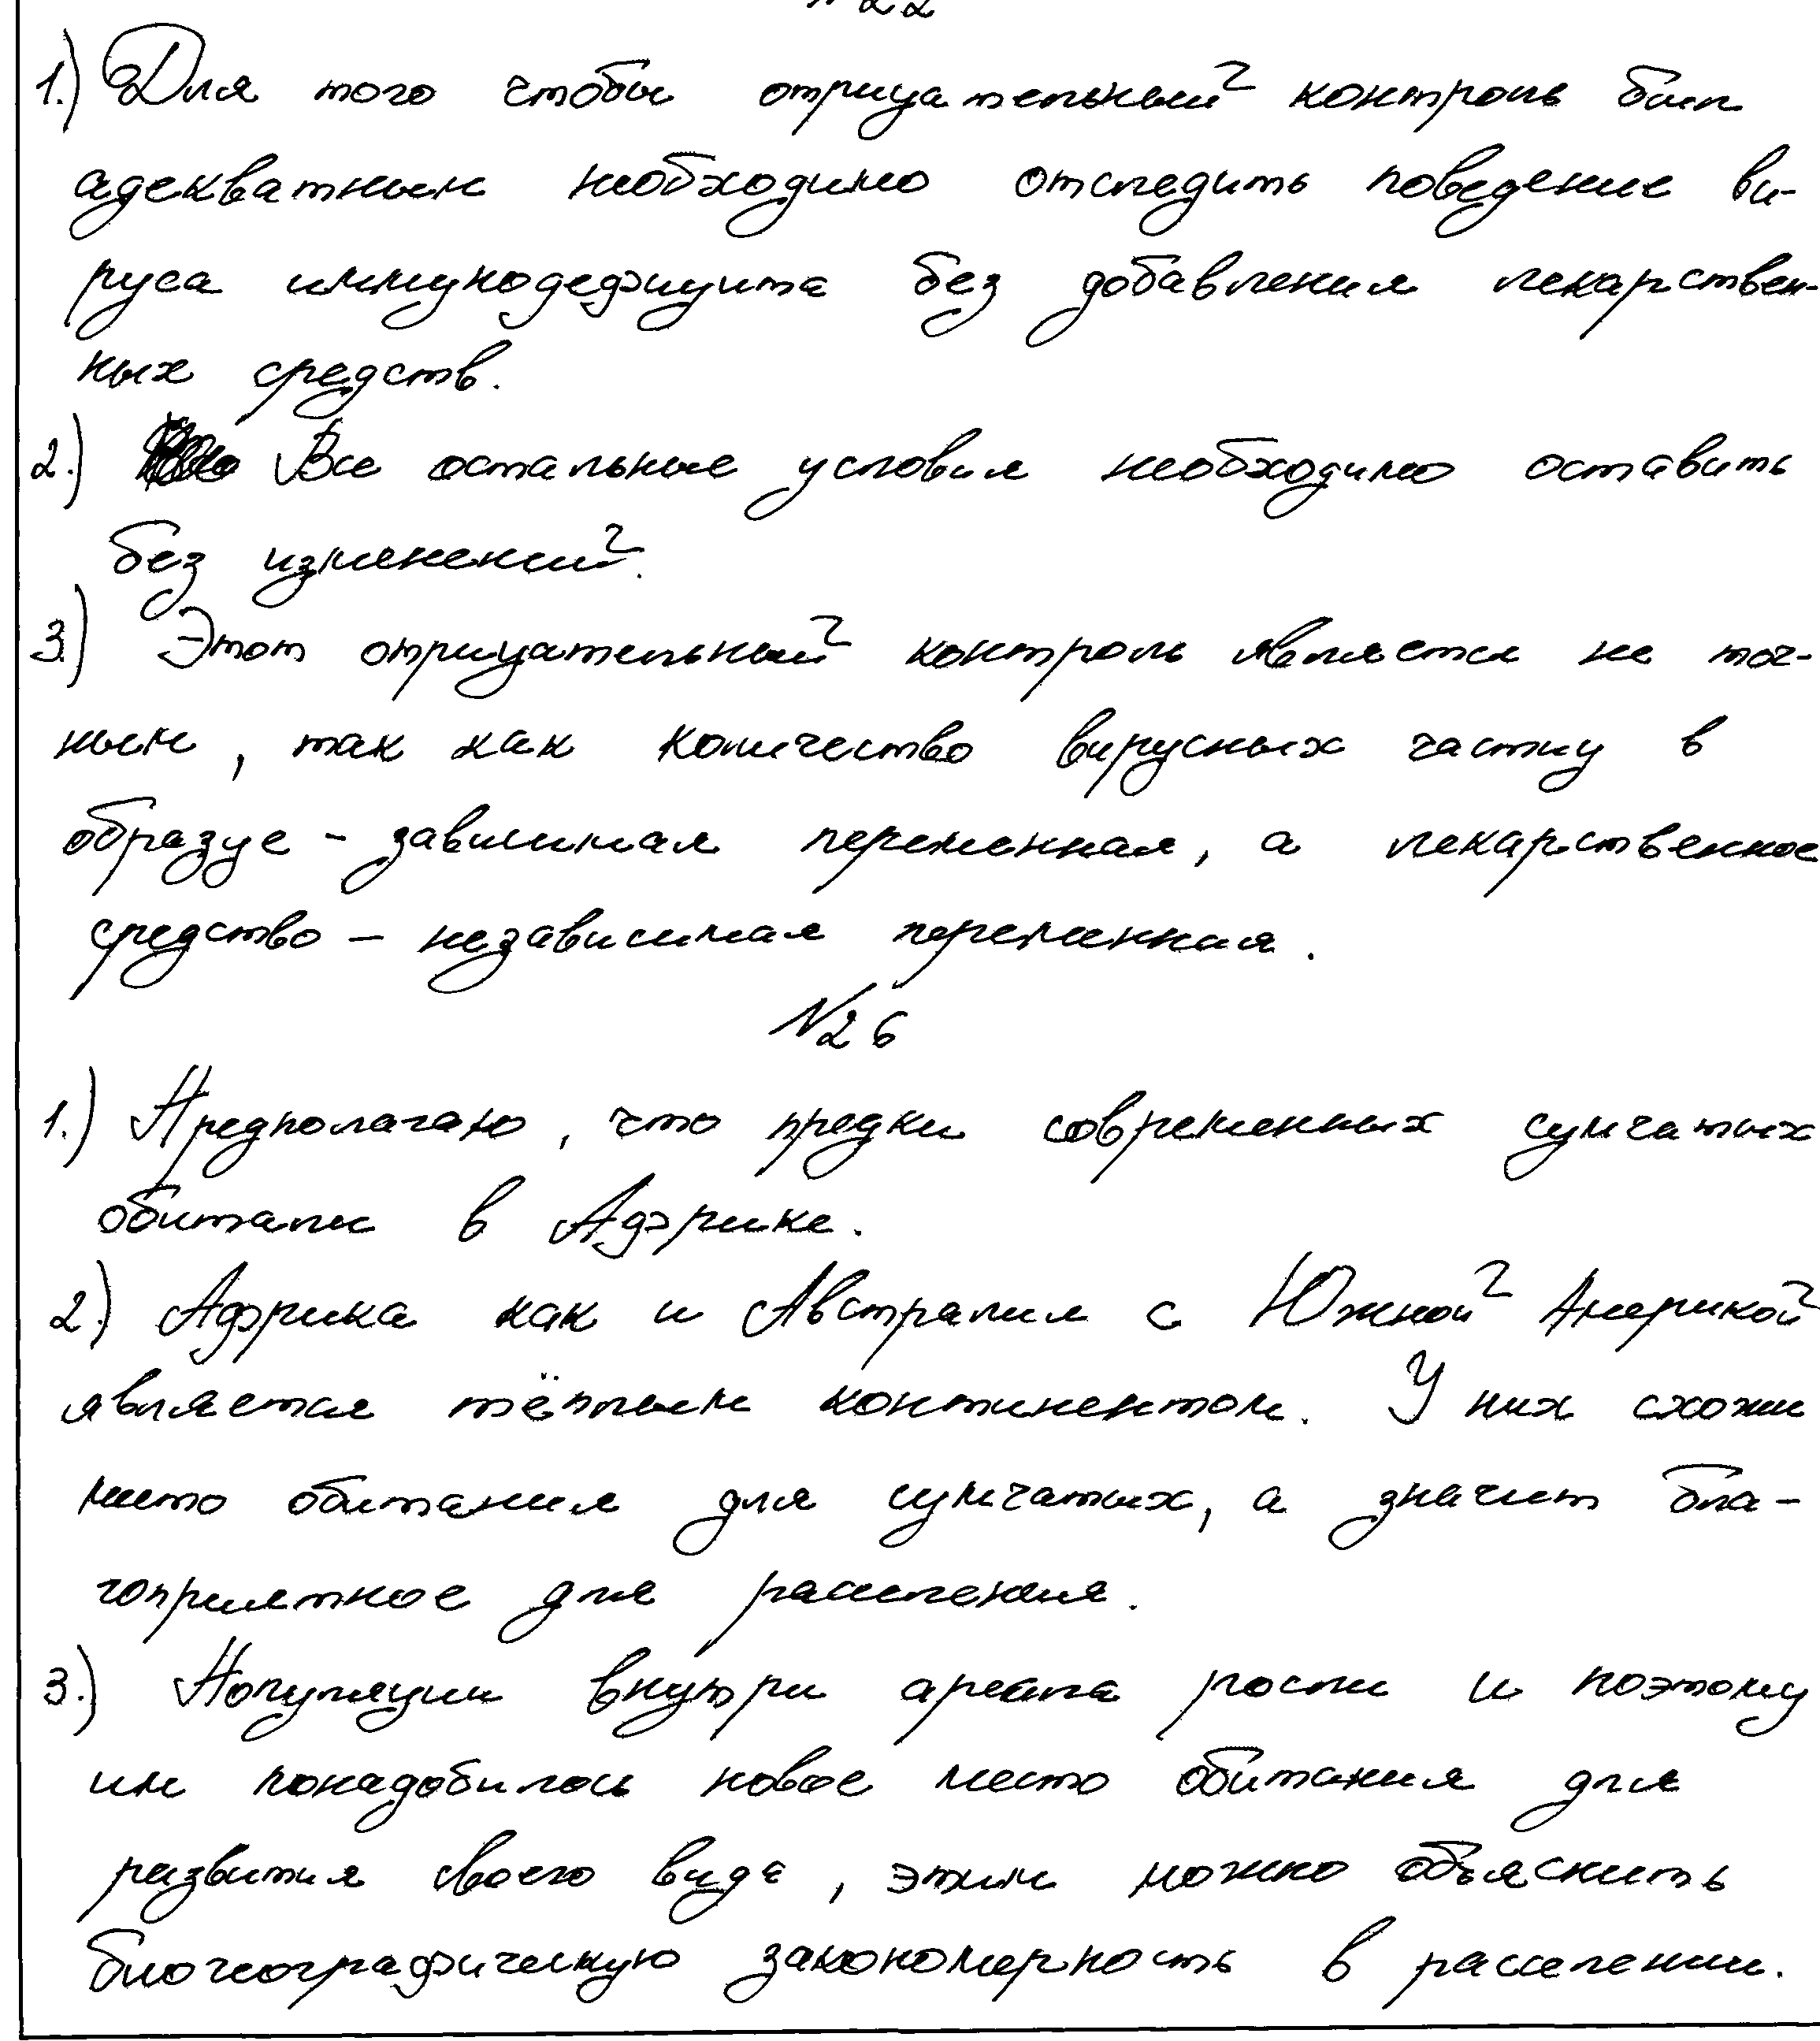 №22
1.) Для того чтобы отрицательный контроль был
адекватным необходимо отследить поведение ви-
руса иммунодефицита без добавления лекарствен-
ных средств.
2.) Все остальные условия необходимо оставить
без изменений.
3.) Этот отрицательный контроль является не точ-
ным, так как количество вирусных частиц в
образце - зависимая переменная, а лекарственное
средство - независимая переменная.
№26
1.) Предполагаю, что предки современных сумчатых
обитали в Африке.
2.) Африка как и Австралия с Южной Америкой
является тёплым континентом. У них схожи
место обитания для сумчатых, а значит бла-
гоприятное для расселения.
3.) Популяции внутри ареала росли и поэтому
им понадобилось новое место обитания для
развития своего вида, этим можно объяснить
биогеографическую закономерность в расселении.